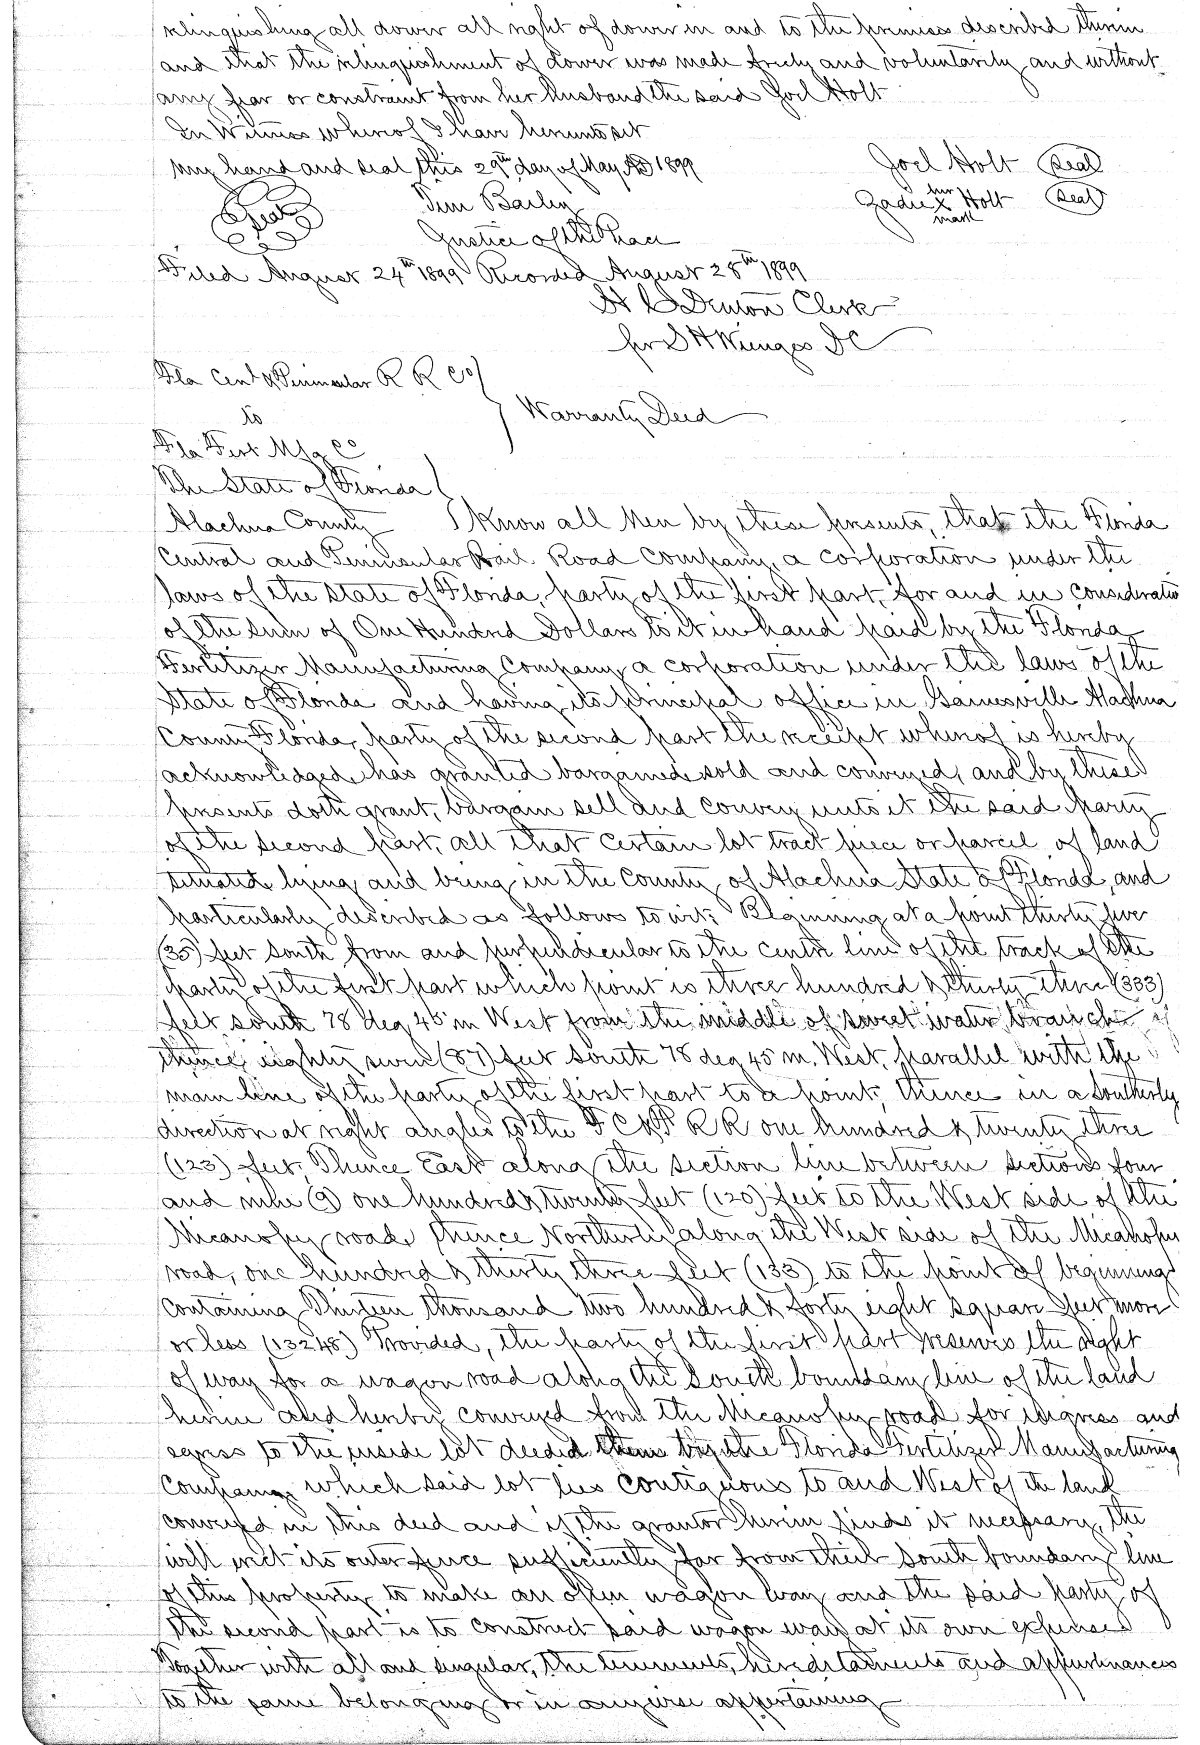 relinquishing all dower all right of dower in and to the premises described therein
and that the relinquishment of dower was made freely and voluntarily and without
any fear or constraint from her husband the said Joel Holt
In Witness whereof I have hereunto set
my hand and seal this 29th day of May AD 1899
Joel Holt (Seal)
(Seal) Tim Bailey
Zadie her x mark Holt (Seal)
Justice of the Peace
Filed August 24th 1899 Recorded August 28th 1899
H C Denton Clerk
per S H Wienges DC
Fla Cent & Peninsular R R Co
to
Warranty Deed
Fla Fert Mfg Co
The State of Florida
Alachua County Know all Men by these presents, that the Florida
Central and Peninsular Rail Road Company, a corporation under the
laws of the State of Florida, party of the first part, for and in consideratio
of the sum of One Hundred Dollars to it in hand paid by the Florida
Fertilizer Manufacturing Company a corporation under the laws of the
State of Florida and having its principal office in Gainesville Alachua
County Florida, party of the second part the receipt whereof is hereby
acknowledged, has granted bargained sold and conveyed, and by these
presents doth grant, bargain sell and convey unto it the said party
of the second part, all that certain lot tract piece or parcel of land
situated, lying and being in the County of Alachua State of Florida, and
particularly described as follows to wit: Beginning at a point thirty five
(35) feet South from and perpendicular to the centre line of the track of the
party of the first part which point is three hundred & thirty three (333)
feet south 78 deg 45 m West from the middle of sweet water branch
thence eighty seven (87) feet South 78 deg 45 m. West, parallel with the
main line of the party of the first part to a point, thence in a Southerly
direction at right angles to the F C & P R R one hundred & twenty three
(123) feet, Thence East along the section line between sections four
and nine (9) one hundred & twenty feet (120) feet to the West side of the
Micanopy road, thence Northerly along the West side of the Micanopy
road, one hundred & thirty three feet (133) to the point of beginning
Containing Thirteen thousand two hundred & forty eight square feet more
or less (13248) Provided, the party of the first part reserves the right
of way for a wagon road along the South boundary line of the land
herein and hereby conveyed from the Micanopy road for ingress and
egress to the inside lot deeded the Florida Fertilizer Manufacturing
Company which said lot lies contiguous to and West of the land
conveyed in this deed and if the grantor herein finds it necessary, the
will erect its outer fence sufficiently far from their South boundary line
of this property to make an open wagon way and the said party of
the second part is to construct said wagon way at its own expense
Together with all and singular, the tenements, hereditaments and appurtenances
to the same belonging or in anywise appertaining